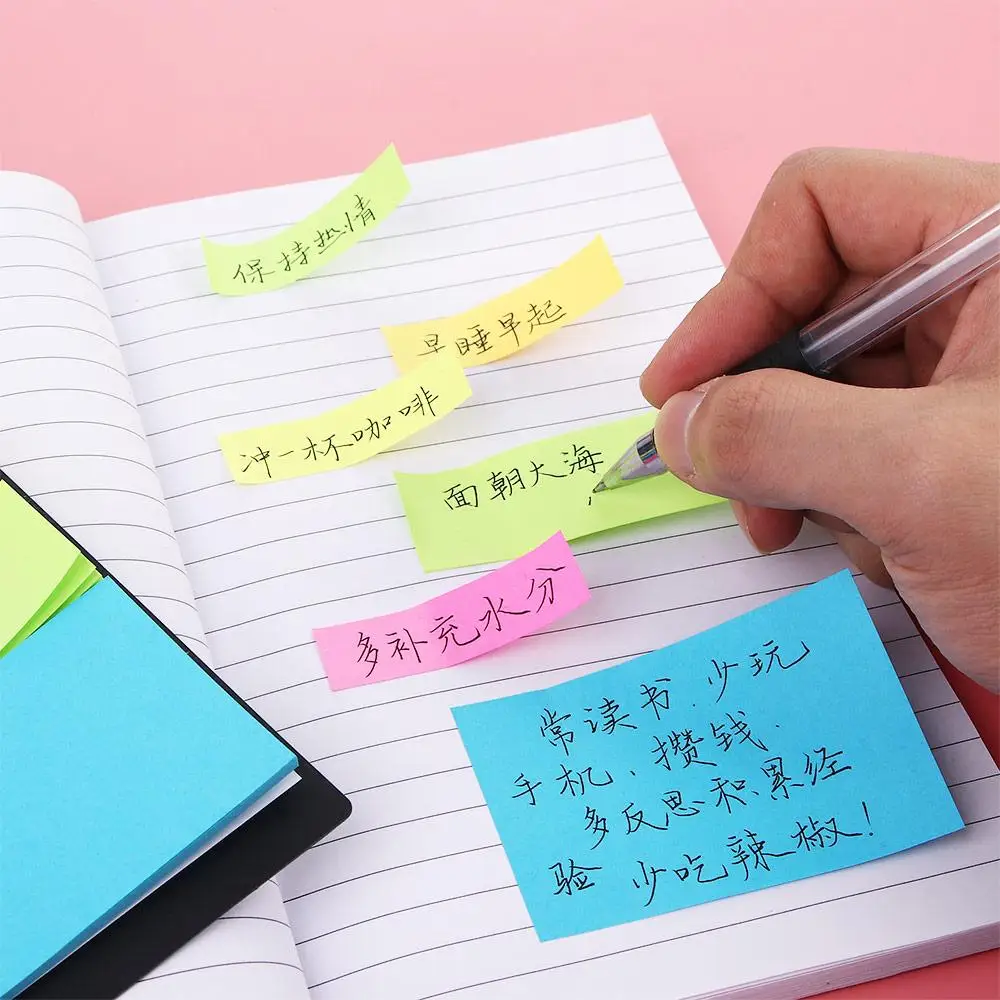 保持热情
早睡早起
冲一杯咖啡
面朝大海,
多补充水分
常读书.少玩
手机、攒钱.
多反思积累经
验 少吃辣椒!